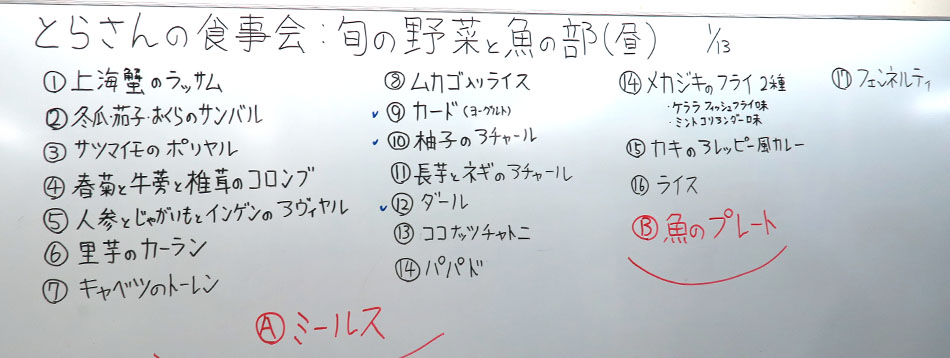 とらさんの食事会:旬の野菜と魚の部(昼) 1/13
① 上海蟹のラッサム
② 冬瓜・茄子・おくらのサンバル
③ サツマイモのポリヤル
④ 春菊と牛蒡と椎茸のコロンブ
⑤ 人参とじゃがいもとインゲンのアヴィヤル
⑥ 里芋のカーラン
⑦ キャベツのトーレン
⑧ ムカゴ入りライス
⑨ カード(ヨーグルト)
⑩ 柚子のアチャール
⑪ 長芋とネギのアチャール
⑫ ダール
⑬ ココナッツチャトニ
⑭ パパド
Ⓐ ミールス
⑭ メカジキのフライ 2種
・ケララフィッシュフライ味
・ミントコリアンダー味
⑮ カキのアレッピー風カレー
⑯ ライス
Ⓑ 魚のプレート
⑰ フェンネルティ